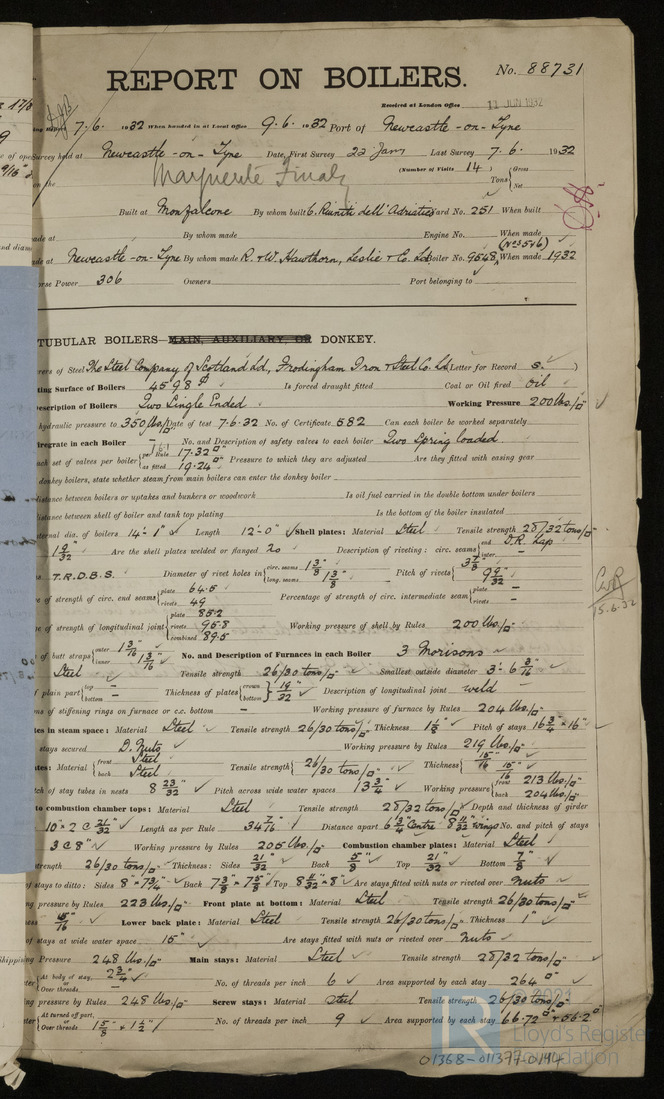 REPORT ON BOILERS.
No. 88731
Received at London Office 11 JUN 1932
7.6.1932 When handed in at Local Office 9.6.1932 Port of Newcastle-on-Tyne
Survey held at Newcastle-on-Tyne Date, First Survey 22 Jan Last Survey 7.6. 1932
(Number of Visits 14)
Gross
Tons
Net
on the Marguerite Finaly
Built at Monfalcone By whom built C. Riuniti dell' Adriatico Yard No. 251 When built
made at By whom made Engine No. When made
(Nos 5 & 6)
made at Newcastle-on-Tyne By whom made R. & W. Hawthorn, Leslie & Co. Ld Boiler No. 9548 When made 1932
Horse Power 306 Owners Port belonging to
TUBULAR BOILERS—MAIN, AUXILIARY, OR DONKEY.
of Steel The Steel Company of Scotland Ld, Frodingham Iron & Steel Co. Ld (Letter for Record S.)
Heating Surface of Boilers 4598 Is forced draught fitted Coal or Oil fired oil
Description of Boilers Two Single Ended Working Pressure 200 lbs/□"
hydraulic pressure to 350 lbs/□" Date of test 7.6.32 No. of Certificate 582 Can each boiler be worked separately
Firegrate in each Boiler No. and Description of safety valves to each boiler Two Spring loaded
each set of valves per boiler per Rule 17.32 □"
as fitted 19.24 □" Pressure to which they are adjusted Are they fitted with easing gear
donkey boilers, state whether steam from main boilers can enter the donkey boiler
distance between boilers or uptakes and bunkers or woodwork Is oil fuel carried in the double bottom under boilers
distance between shell of boiler and tank top plating Is the bottom of the boiler insulated
internal dia. of boilers 14'-1" Length 12'-0" Shell plates: Material Steel Tensile strength 28/32 tons/□"
19/32 Are the shell plates welded or flanged no Description of riveting: circ. seams end D.R. Lap
inter. –
T.R.D.B.S. Diameter of rivet holes in circ. seams 1 3/8"
long. seams 1 3/8" Pitch of rivets 3 7/8"
9 9/32"
of strength of circ. end seams plate 64.5
rivets 49 Percentage of strength of circ. intermediate seam plate –
rivets –
of strength of longitudinal joint plate 85.2
rivets 95.8
combined 89.5 Working pressure of shell by Rules 200 lbs/□"
of butt straps outer 1 3/16"
inner 1 3/16" No. and Description of Furnaces in each Boiler 3 Morisons
Steel Tensile strength 26/30 tons/□" Smallest outside diameter 3'-6 3/16"
of plain part top –
bottom – Thickness of plates crown
bottom 19/32" Description of longitudinal joint weld
of stiffening rings on furnace or c.c. bottom – Working pressure of furnace by Rules 204 lbs/□"
in steam space: Material Steel Tensile strength 26/30 tons/□" Thickness 1 1/8" Pitch of stays 16 3/4" × 16"
stays secured D. Nuts Working pressure by Rules 219 lbs/□"
Material front Steel
back Steel Tensile strength 26/30 tons/□" Thickness 15/16"
15/16"
Pitch of stay tubes in nests 8 23/32" Pitch across wide water spaces 13 3/4" Working pressure front 213 lbs/□"
back 204 lbs/□"
to combustion chamber tops: Material Steel Tensile strength 28/32 tons/□" Depth and thickness of girder
10" × 2 @ 21/32" Length as per Rule 34 7/16" Distance apart 6 3/4" Centre 8 11/32" wings No. and pitch of stays
3 @ 8" Working pressure by Rules 205 lbs/□" Combustion chamber plates: Material Steel
strength 26/30 tons/□" Thickness: Sides 21/32" Back 5/8" Top 21/32" Bottom 7/8"
of stays to ditto: Sides 8" × 7 3/4" Back 7 3/8" × 7 5/8" Top 8 11/32" × 8" Are stays fitted with nuts or riveted over nuts
pressure by Rules 223 lbs/□" Front plate at bottom: Material Steel Tensile strength 26/30 tons/□"
15/16" Lower back plate: Material Steel Tensile strength 26/30 tons/□" Thickness 1"
of stays at wide water space 15" Are stays fitted with nuts or riveted over nuts
Pressure 248 lbs/□" Main stays: Material Steel Tensile strength 28/32 tons/□"
At body of stay, 2 3/4"
Over threads – No. of threads per inch 6 Area supported by each stay 264 □"
pressure by Rules 248 lbs/□" Screw stays: Material Steel Tensile strength 26/30 tons/□"
At turned off part,
Over threads 1 5/8" & 1 1/2" No. of threads per inch 9 Area supported by each stay 66.72 □" & 56.2 □"
15.6.32
© 2021
Lloyd's Register
Foundation
01368-011377-0194